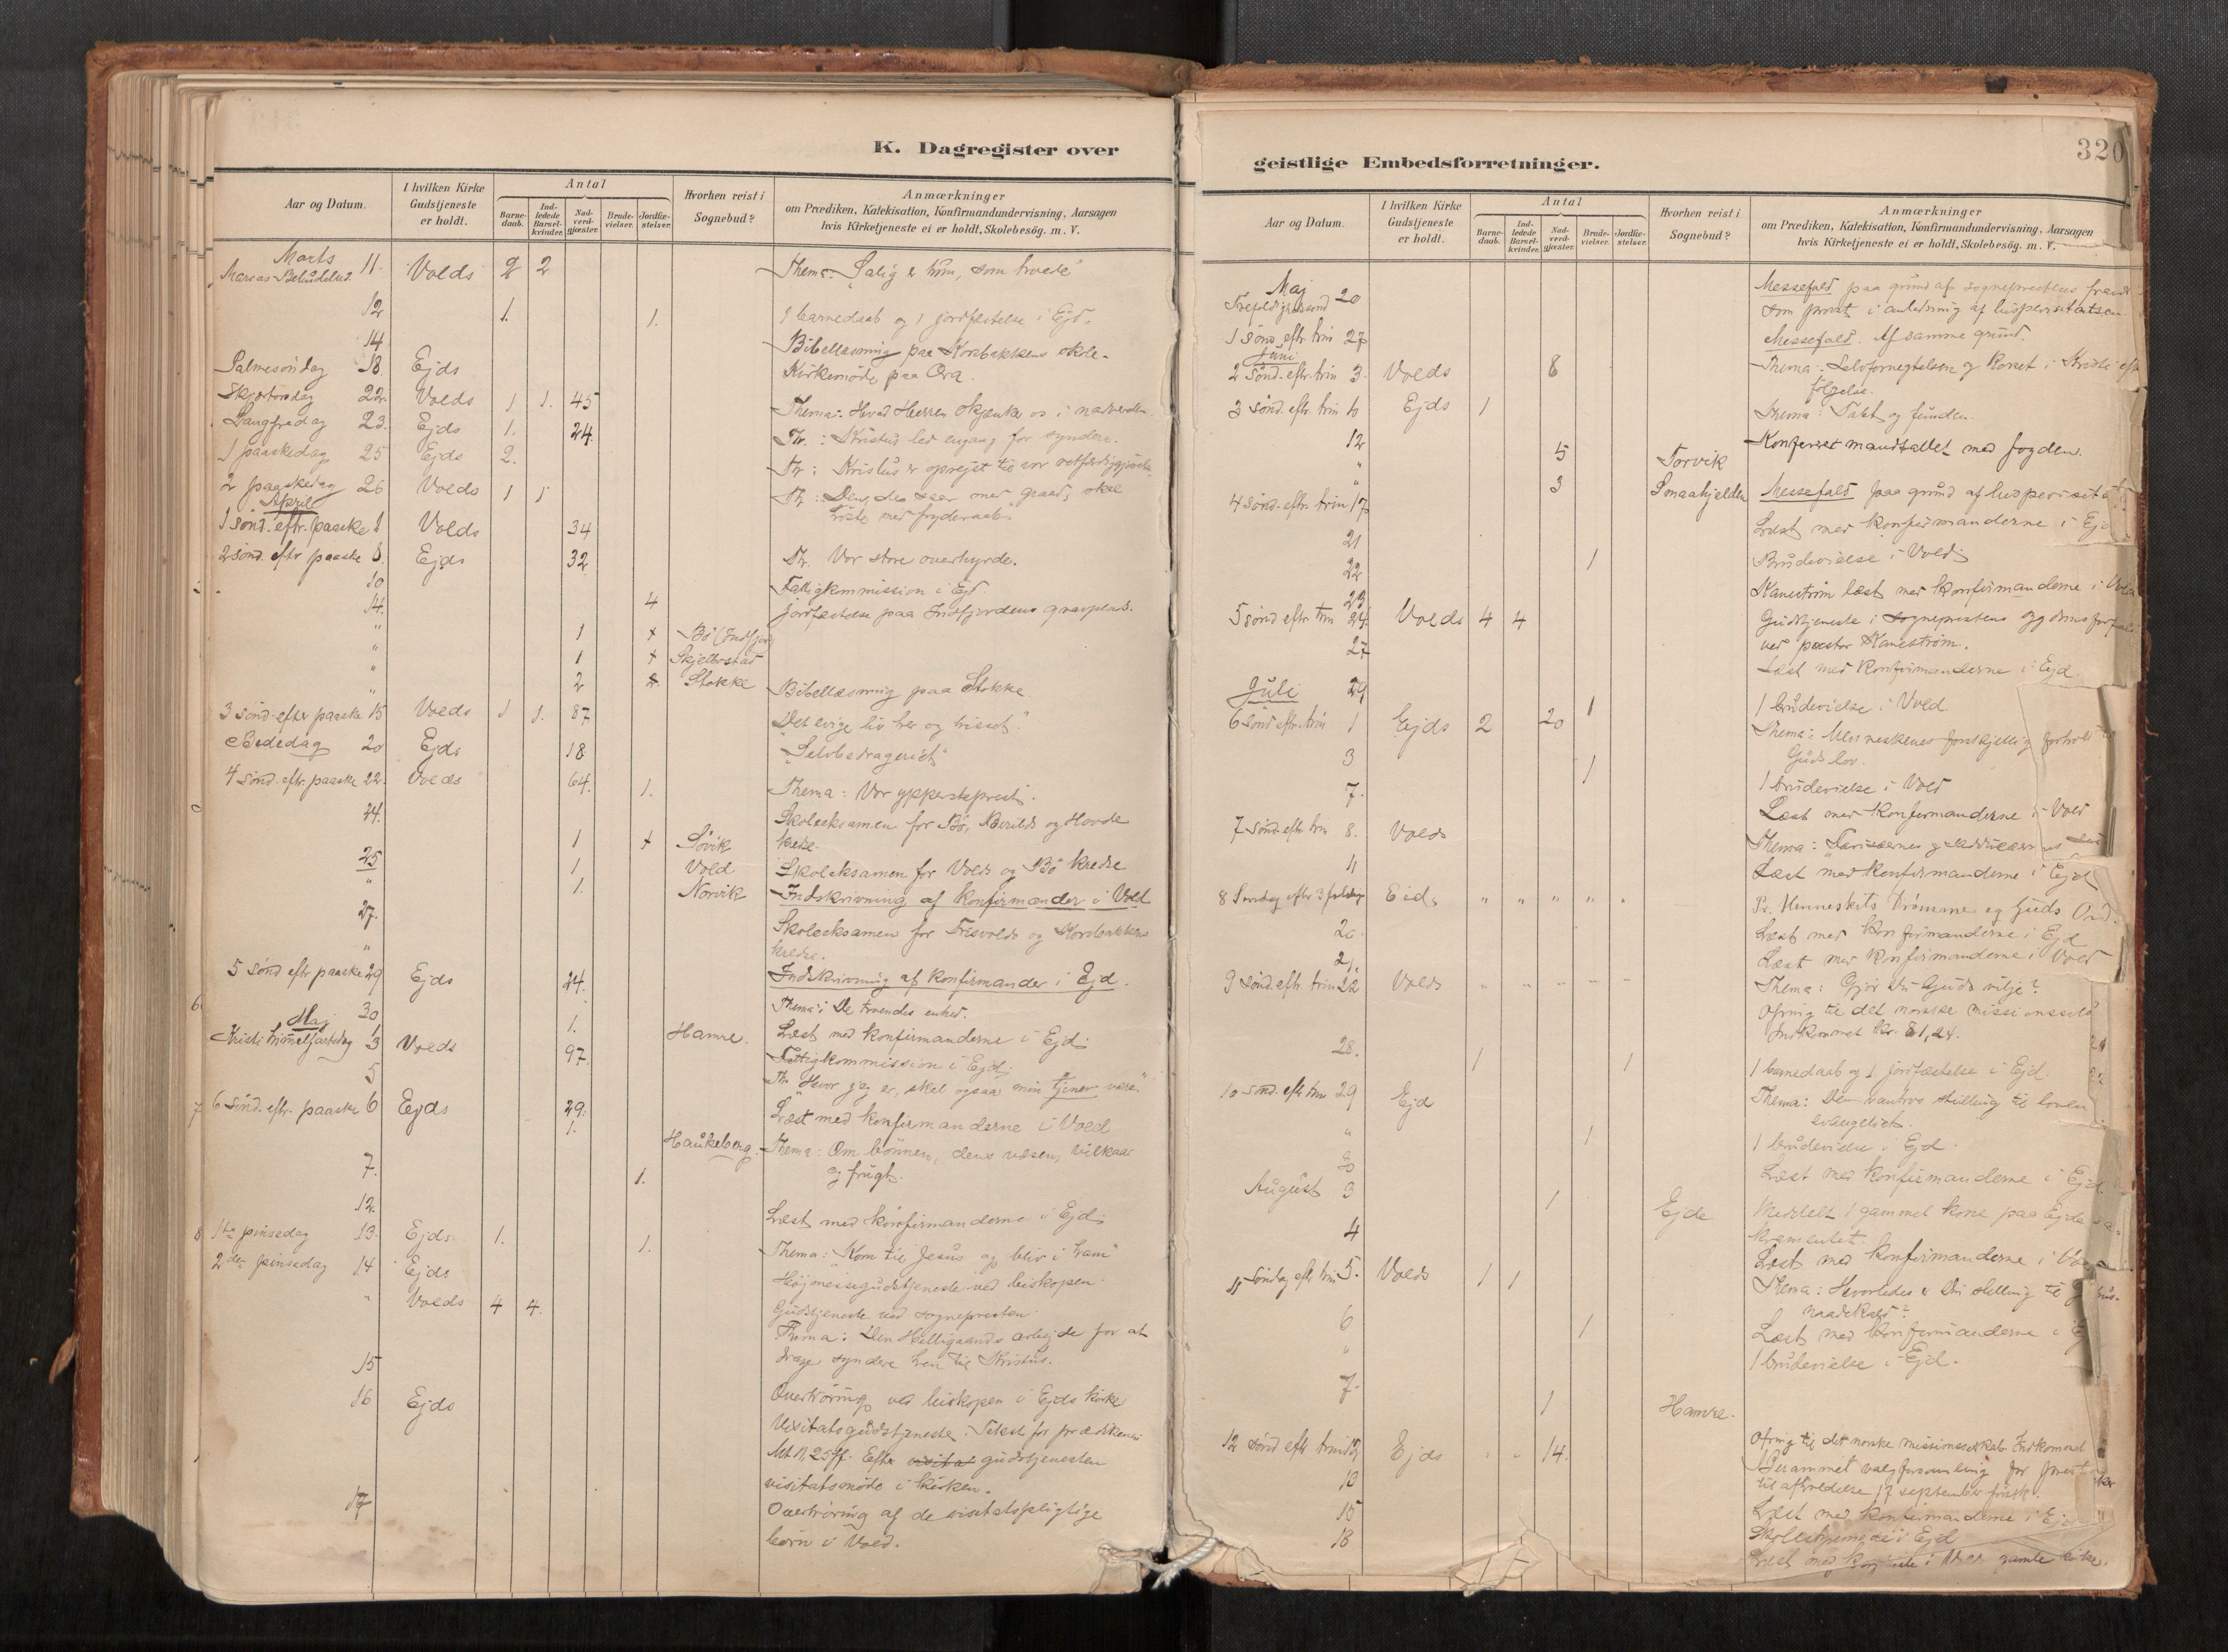 K. Dagregister over
Aar og Datum. I hvilken Kirke Gudstjeneste er holdt. Antal Barnedaab. Indledede Barselkvinder. Nadverdgjæster. Brudevielser. Jordfæstelser. Hvorhen reist i Sognebud? Anmærkninger om Prædiken, Katekisation, Konfirmandundervisning, Aarsagen hvis Kirketjeneste ei er holdt, Skolebesög. m. V.
Marts
Marias Bebudelse 11. Volds 2 2 Thema: Salig er hun, som troede"
12 1. 1. 1 barnedaab og 1 jordfæstelse i Ejd.
14 Bibellæsning paa Korsbakkens skole.
Palmesöndag 18. Ejds Kirkemöde paa Ora.
Skjærtorsdag 22. Volds 1 1. 45 Thema: Hvad Herren skjænker os i nadverden.
Langfredag 23. Ejds 1. 24. Th.: Kristus led engang for syndere.
1 paaskedag 25 Ejds 2. Th: Kristus er oprejst til vor retfærdiggjörelse
2 paaskedag 26 Volds 1 1 Th: Den, der saar med graad, skal
höste med frydesang.
April
1 sönd. eftr. paaske 1 Volds 34
2 sönd. eftr paaske 8. Ejds 32 Th. Vor store overhyrde.
10 Fattigkommission i Ejd.
14. 4 jordfæstelse paa Indfjordens gravplads.
" 1 + Bö (Indfjord)
" 1 + Skjelbostad
" 2 Stokke
" Bibellæsning paa Stokke
3 sönd. efter paaske 15 Volds 1 1. 87 "Det evige liv her og hisset."
Bededag 20 Ejds 18 "Selvbedrageriet"
4 sönd. eftr. paaske 22. Volds 64. 1. Thema: Vor ypperstepræst.
24. Skoleeksamen for Bö, Berilds og Hovde
kredse.
1 + Sövik
25 1. Vold Skoleeksamen for Volds og Bö kredse
" 1. Norvik Indskrivning af konfirmander i Vold
27. Skoleeksamen for Trisvolds og Korsbakkens
kredse.
" Indskrivning af konfirmander i Ejd.
5 sönd eftr paaske 29 Ejds 24. Thema: De troendes enhed.
30 1. Hamre. Læst med konfirmanderne i Ejd.
Maj
Kristi himmelfartsdag 3 Volds 97. Fattigkommission i Ejd.
Th. "Hvor jeg er, skal ogsaa min tjener være."
5 Læst med konfirmanderne i Vold
6 Sönd. eftr. paaske 6 Ejds 29. Thema: Om bönnen, dens væsen, vilkaar
og frugt.
1. Haukeberg.
7. 1.
12. Læst med konfirmanderne i Ejd.
1ste pinsedag 13. Ejds 1. 1. Thema: "Kom til Jesus og bliv i ham"
2den pinsedag 14 Ejds Höjmessegudstjeneste ved biskopen.
" Volds 4 4. Gudstjeneste ved sognepresten
Thema: Den Helligaands arbejde for at
drage syndere hen til Kristus.
15 Overhöring ved biskopen i Ejds kirke
16 Ejds Visitatsgudstjeneste. Tekst for prædikenen
Mt 11, 25 ff. Efter gudstjenesten
visitatsmöde i kirken.
17 Overhöring af de visitatspligtige
börn i Vold.
geistlige Embedsforretninger.
320
Aar og Datum. I hvilken Kirke Gudstjeneste er holdt. Antal Barnedaab. Indledede Barselkvinder. Nadverdgjæster. Brudevielser. Jordfæstelser. Hvorhen reist i Sognebud? Anmærkninger om Prædiken, Katekisation, Konfirmandundervisning, Aarsagen hvis Kirketjeneste ei er holdt, Skolebesög. m. V.
Maj
Trefoldighedssönd 20 Messefald paa grund af sogneprestens
som provst i anledning af bispevisitatsen
1 sönd eftr trin 27 Messefald. Af samme grund.
Juni
2 Sönd. eftr. trin 3. Volds 8 Thema: Selvfornegtelsen og korset i Kristi
fölgelse.
3 sönd. eftr. trin 10 Ejds 1 Thema: Tabt og funden.
12 Konfereret mandtallet med fogden.
" 5 Torvik
" 3 Smaahjelden
4 sönd. eftr. trin 17 Messefald paa grund af bispevisitat
21 Læst med konfirmanderne i Ejd
22 1 Brudevielse i Vold.
23 Kaneström læst med konfirmanderne i Vold
5 sönd eftr trin 24. Volds 4 4 Gudstjeneste i sogneprestens sygdomsforfald
ved pastor Kaneström.
27 Læst med konfirmanderne i Ejd.
29 1 1 brudevielse i Vold
Juli
6 sönd eftr. trin 1 Ejds 2 20 Thema: Menneskenes forskjellig forhold
Guds lov.
3 1 1 brudevielse i Vold
7. Læst med konfirmanderne i Vold
7 sönd. eftr. trin 8. Volds Thema: Farisæernes og Sadducæernes
11 Læst med konfirmanderne i Ejd
8 Søndag efter 3foldigh Eids " " " " " Pr. Menneskets Drømme og Guds Ord.
20. Læst med konfirmanderne i Ejd
21. Læst med konfirmanderne i Vold
9 sönd. eftr. trin 22 Volds " " " " Thema: Gjör du Guds vilje?
Ofring til det norske missionsselsk
Indkommet kr. 81,24.
28. 1 1 1 barnedaab og 1 jordfæstelse i Ejd.
10 sönd. eftr trin 29 Ejd Thema: Den vantros stilling til loven
evangeliet.
" 1 1 brudevielse i Ejd.
30 Læst med konfirmanderne i Ejd.
August 3 1 Ejde Meddelt 1 gammel kone paa Ejde sa-
kramentet.
4 Læst med konfirmanderne i Vo
11 söndag eftr trin 5. Volds 1 1 Thema: Hvorledes er Din stilling til
naadekald?
6 Læst med konfirmanderne i E
" 1 1 brudevielse i Ejd.
7. 1 Hamre.
12 sönd eftr trin 12 Ejds " " 14. Ofring til det norske missionsselskab Indkommet
13 Berammet valgforsamling for
til afholdelse 17 september
15 Læst med konfirmanderne i Ejd
i Ejd
18 Læst med i Vold gamle kirke.